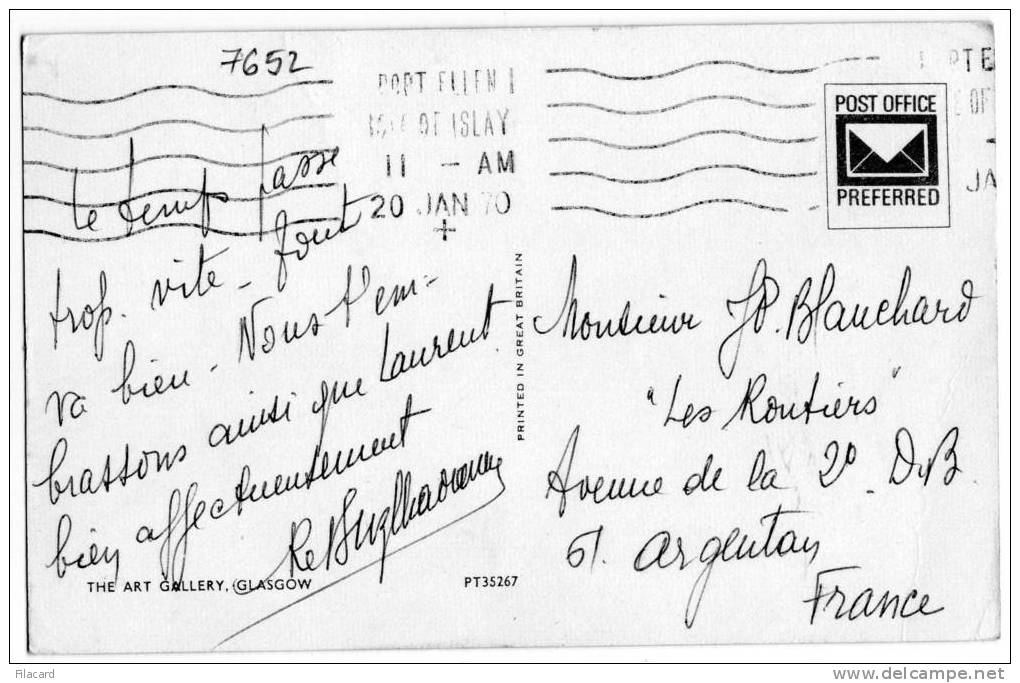 7652
PORT ELLEN I
ISLE OF ISLAY
11 - AM
20 JAN 70
POST OFFICE
PREFERRED
JA
Le temps passe
trop. vite - Tout
va bien - Nous t'em-
brassons ainsi que Laurent
bien affectueusement
THE ART GALLERY, GLASGOW
PT35267
PRINTED IN GREAT BRITAIN
Monsieur JP. Blanchard
"Les Routiers"
Avenue de la 2º D.B
61 Argentan
France
Filacard
delcampe.net